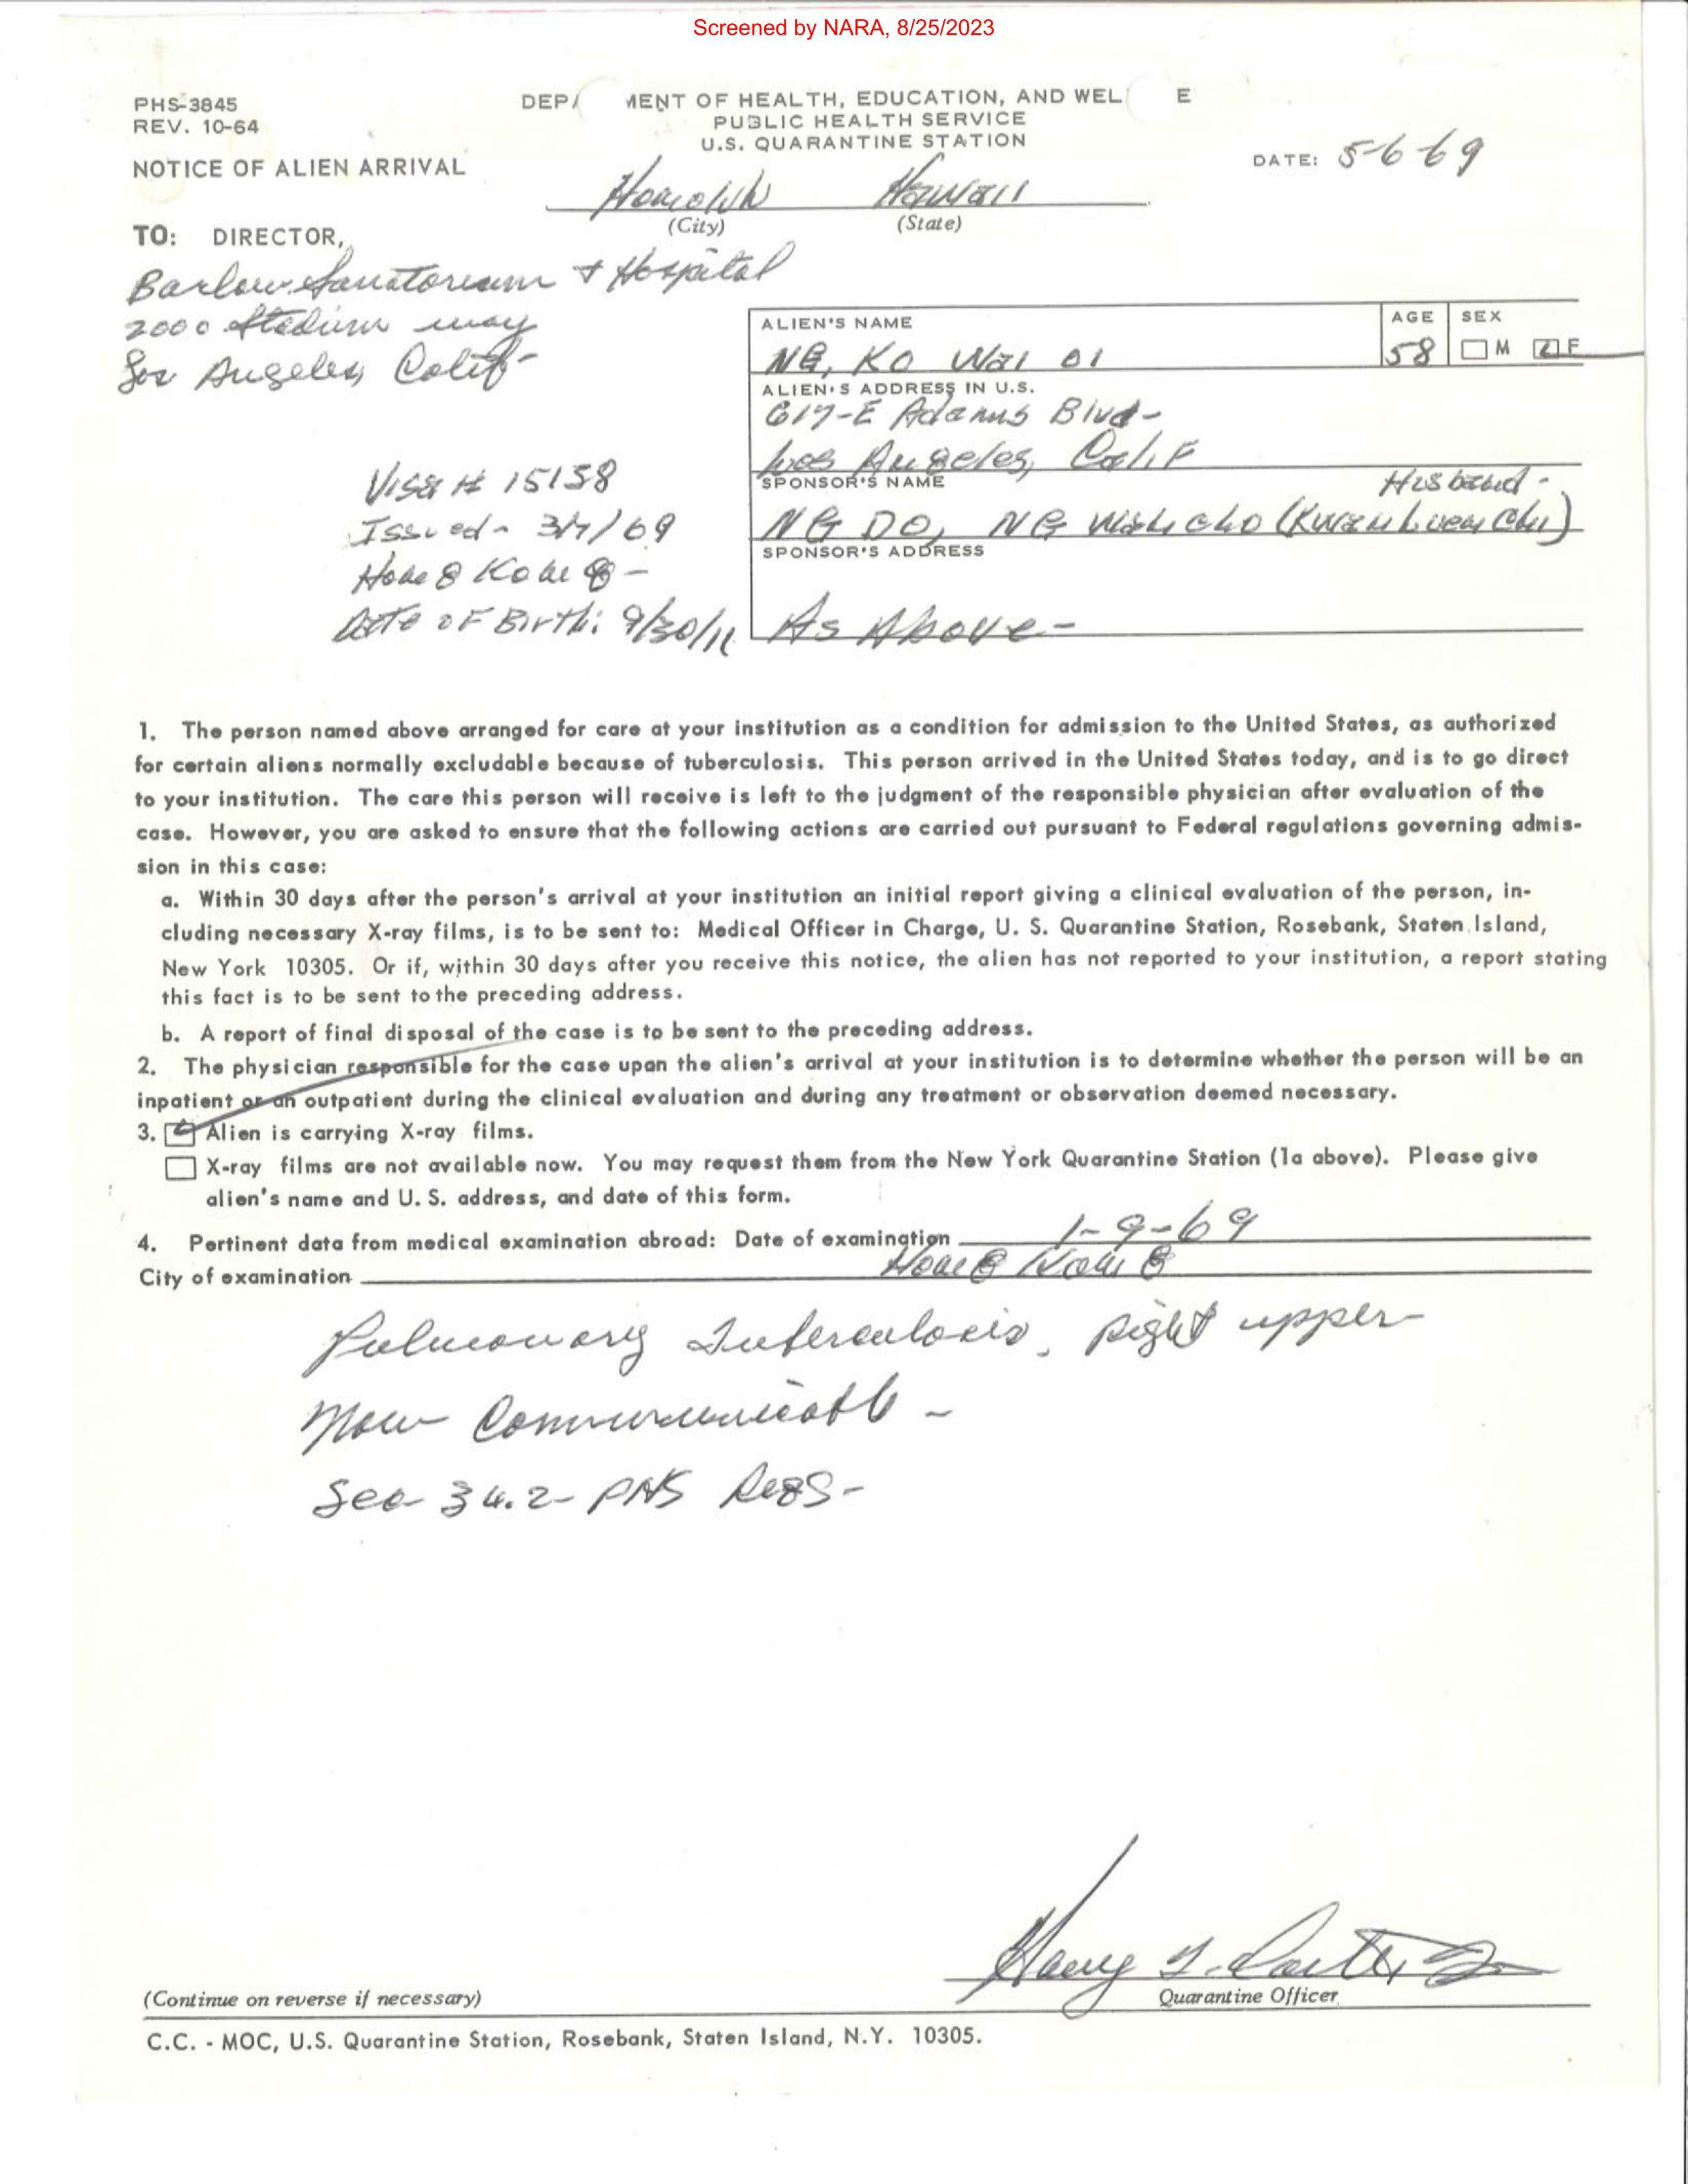 Screened by NARA, 8/25/2023
PHS-3845
REV. 10-64
NOTICE OF ALIEN ARRIVAL
DEPA MENT OF HEALTH, EDUCATION, AND WEL E
PUBLIC HEALTH SERVICE
U.S. QUARANTINE STATION
DATE: 5-6-69
Honolulu Hawaii
(City) (State)
TO: DIRECTOR,
Barlow Sanatorium + Hospital
2000 Stadium way
Los Angeles, Calif-
ALIEN'S NAME
NG, KO Wai 01
AGE
58
SEX
M F
ALIEN'S ADDRESS IN U.S.
617-E Adams Blvd-
Los Angeles, Calif
SPONSOR'S NAME
Husband-
NG DO, NG
SPONSOR'S ADDRESS
As Above-
Visa # 15158
Issued- 3/7/69
Date of Birth: 9/30/11
1. The person named above arranged for care at your institution as a condition for admission to the United States, as authorized
for certain aliens normally excludable because of tuberculosis. This person arrived in the United States today, and is to go direct
to your institution. The care this person will receive is left to the judgment of the responsible physician after evaluation of the
case. However, you are asked to ensure that the following actions are carried out pursuant to Federal regulations governing admis-
sion in this case:
a. Within 30 days after the person's arrival at your institution an initial report giving a clinical evaluation of the person, in-
cluding necessary X-ray films, is to be sent to: Medical Officer in Charge, U. S. Quarantine Station, Rosebank, Staten Island,
New York 10305. Or if, within 30 days after you receive this notice, the alien has not reported to your institution, a report stating
this fact is to be sent to the preceding address.
b. A report of final disposal of the case is to be sent to the preceding address.
2. The physician responsible for the case upon the alien's arrival at your institution is to determine whether the person will be an
inpatient or an outpatient during the clinical evaluation and during any treatment or observation deemed necessary.
3. Alien is carrying X-ray films.
X-ray films are not available now. You may request them from the New York Quarantine Station (1a above). Please give
alien's name and U. S. address, and date of this form.
4. Pertinent data from medical examination abroad: Date of examination 1-9-69
City of examination
Pulmonary Tuberculosis, right upper-
Communicable -
Sec 34.2- PHS Regs-
(Continue on reverse if necessary)
Quarantine Officer
C.C. - MOC, U.S. Quarantine Station, Rosebank, Staten Island, N.Y. 10305.